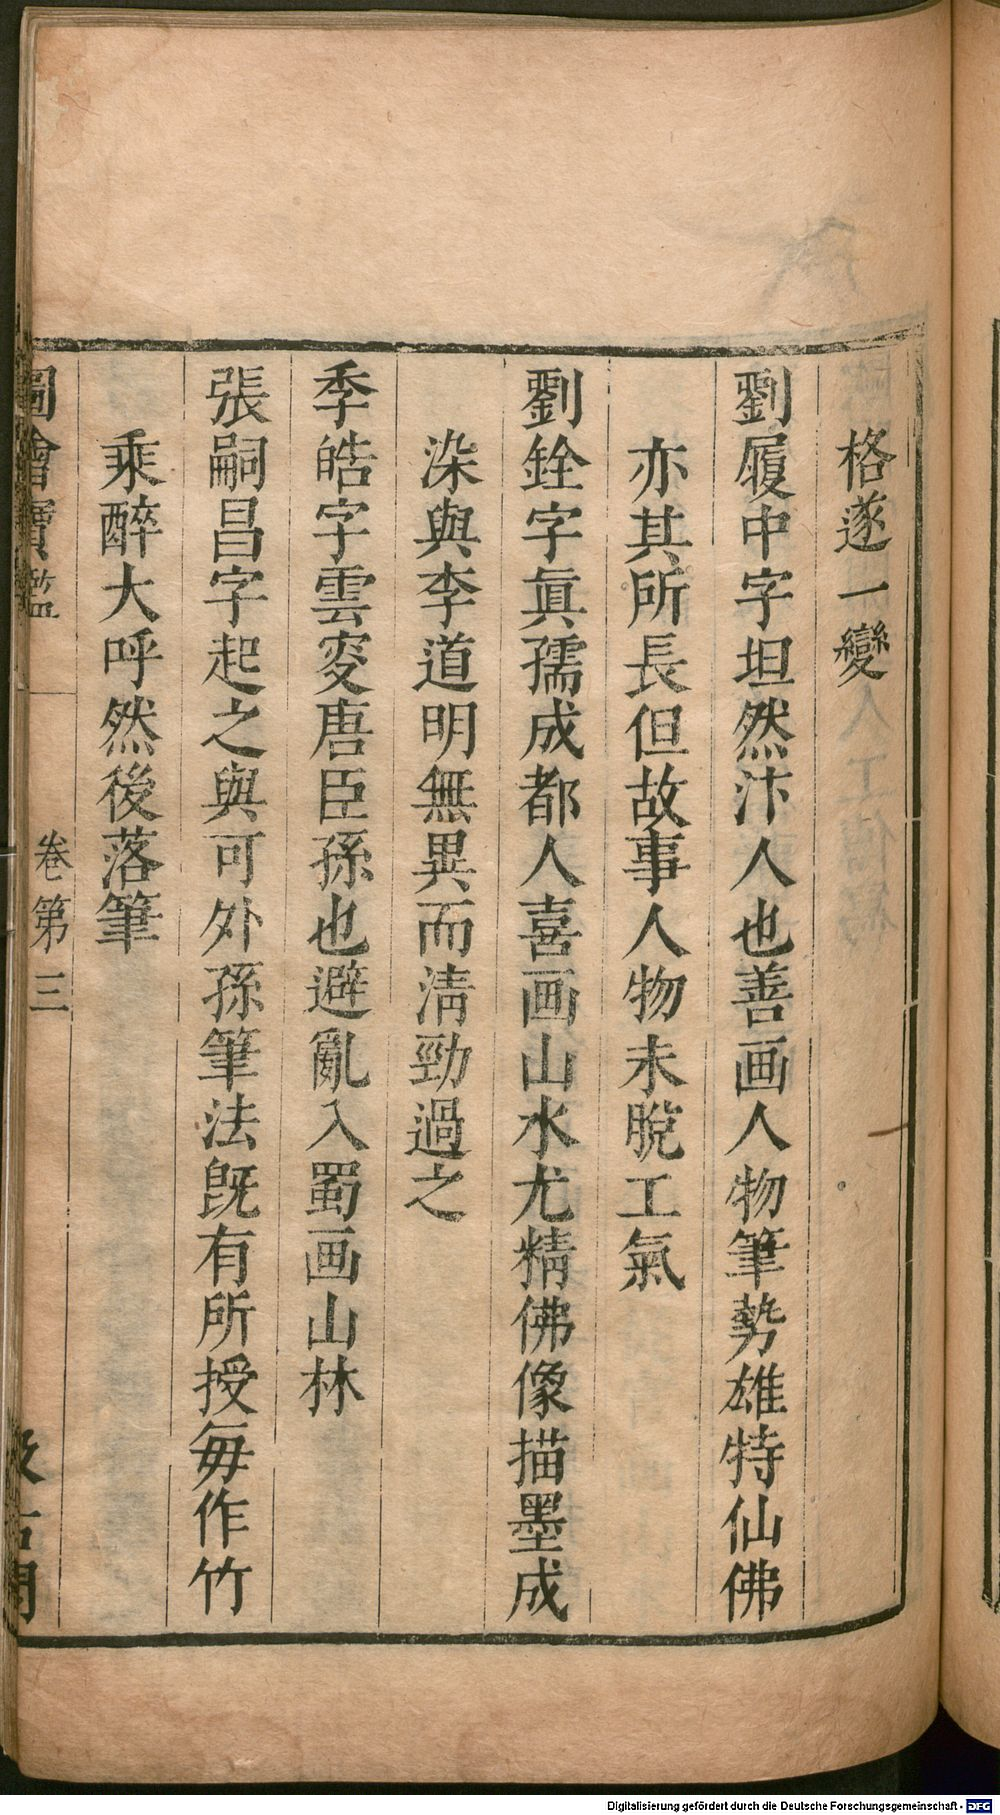 格遂一變
劉履中字坦然汴人也善画人物筆勢雄特仙佛
亦其所長但故事人物未脫工氣
劉銓字眞孺成都人喜画山水尤精佛像描墨成
染與李道明無異而淸勁過之
季皓字雲叟唐臣孫也避亂入蜀画山林
張嗣昌字起之與可外孫筆法旣有所授每作竹
乘醉大呼然後落筆
圖繪寶鑑
卷第三
汲古閣
Digitalisierung gefördert durch die Deutsche Forschungsgemeinschaft - DFG